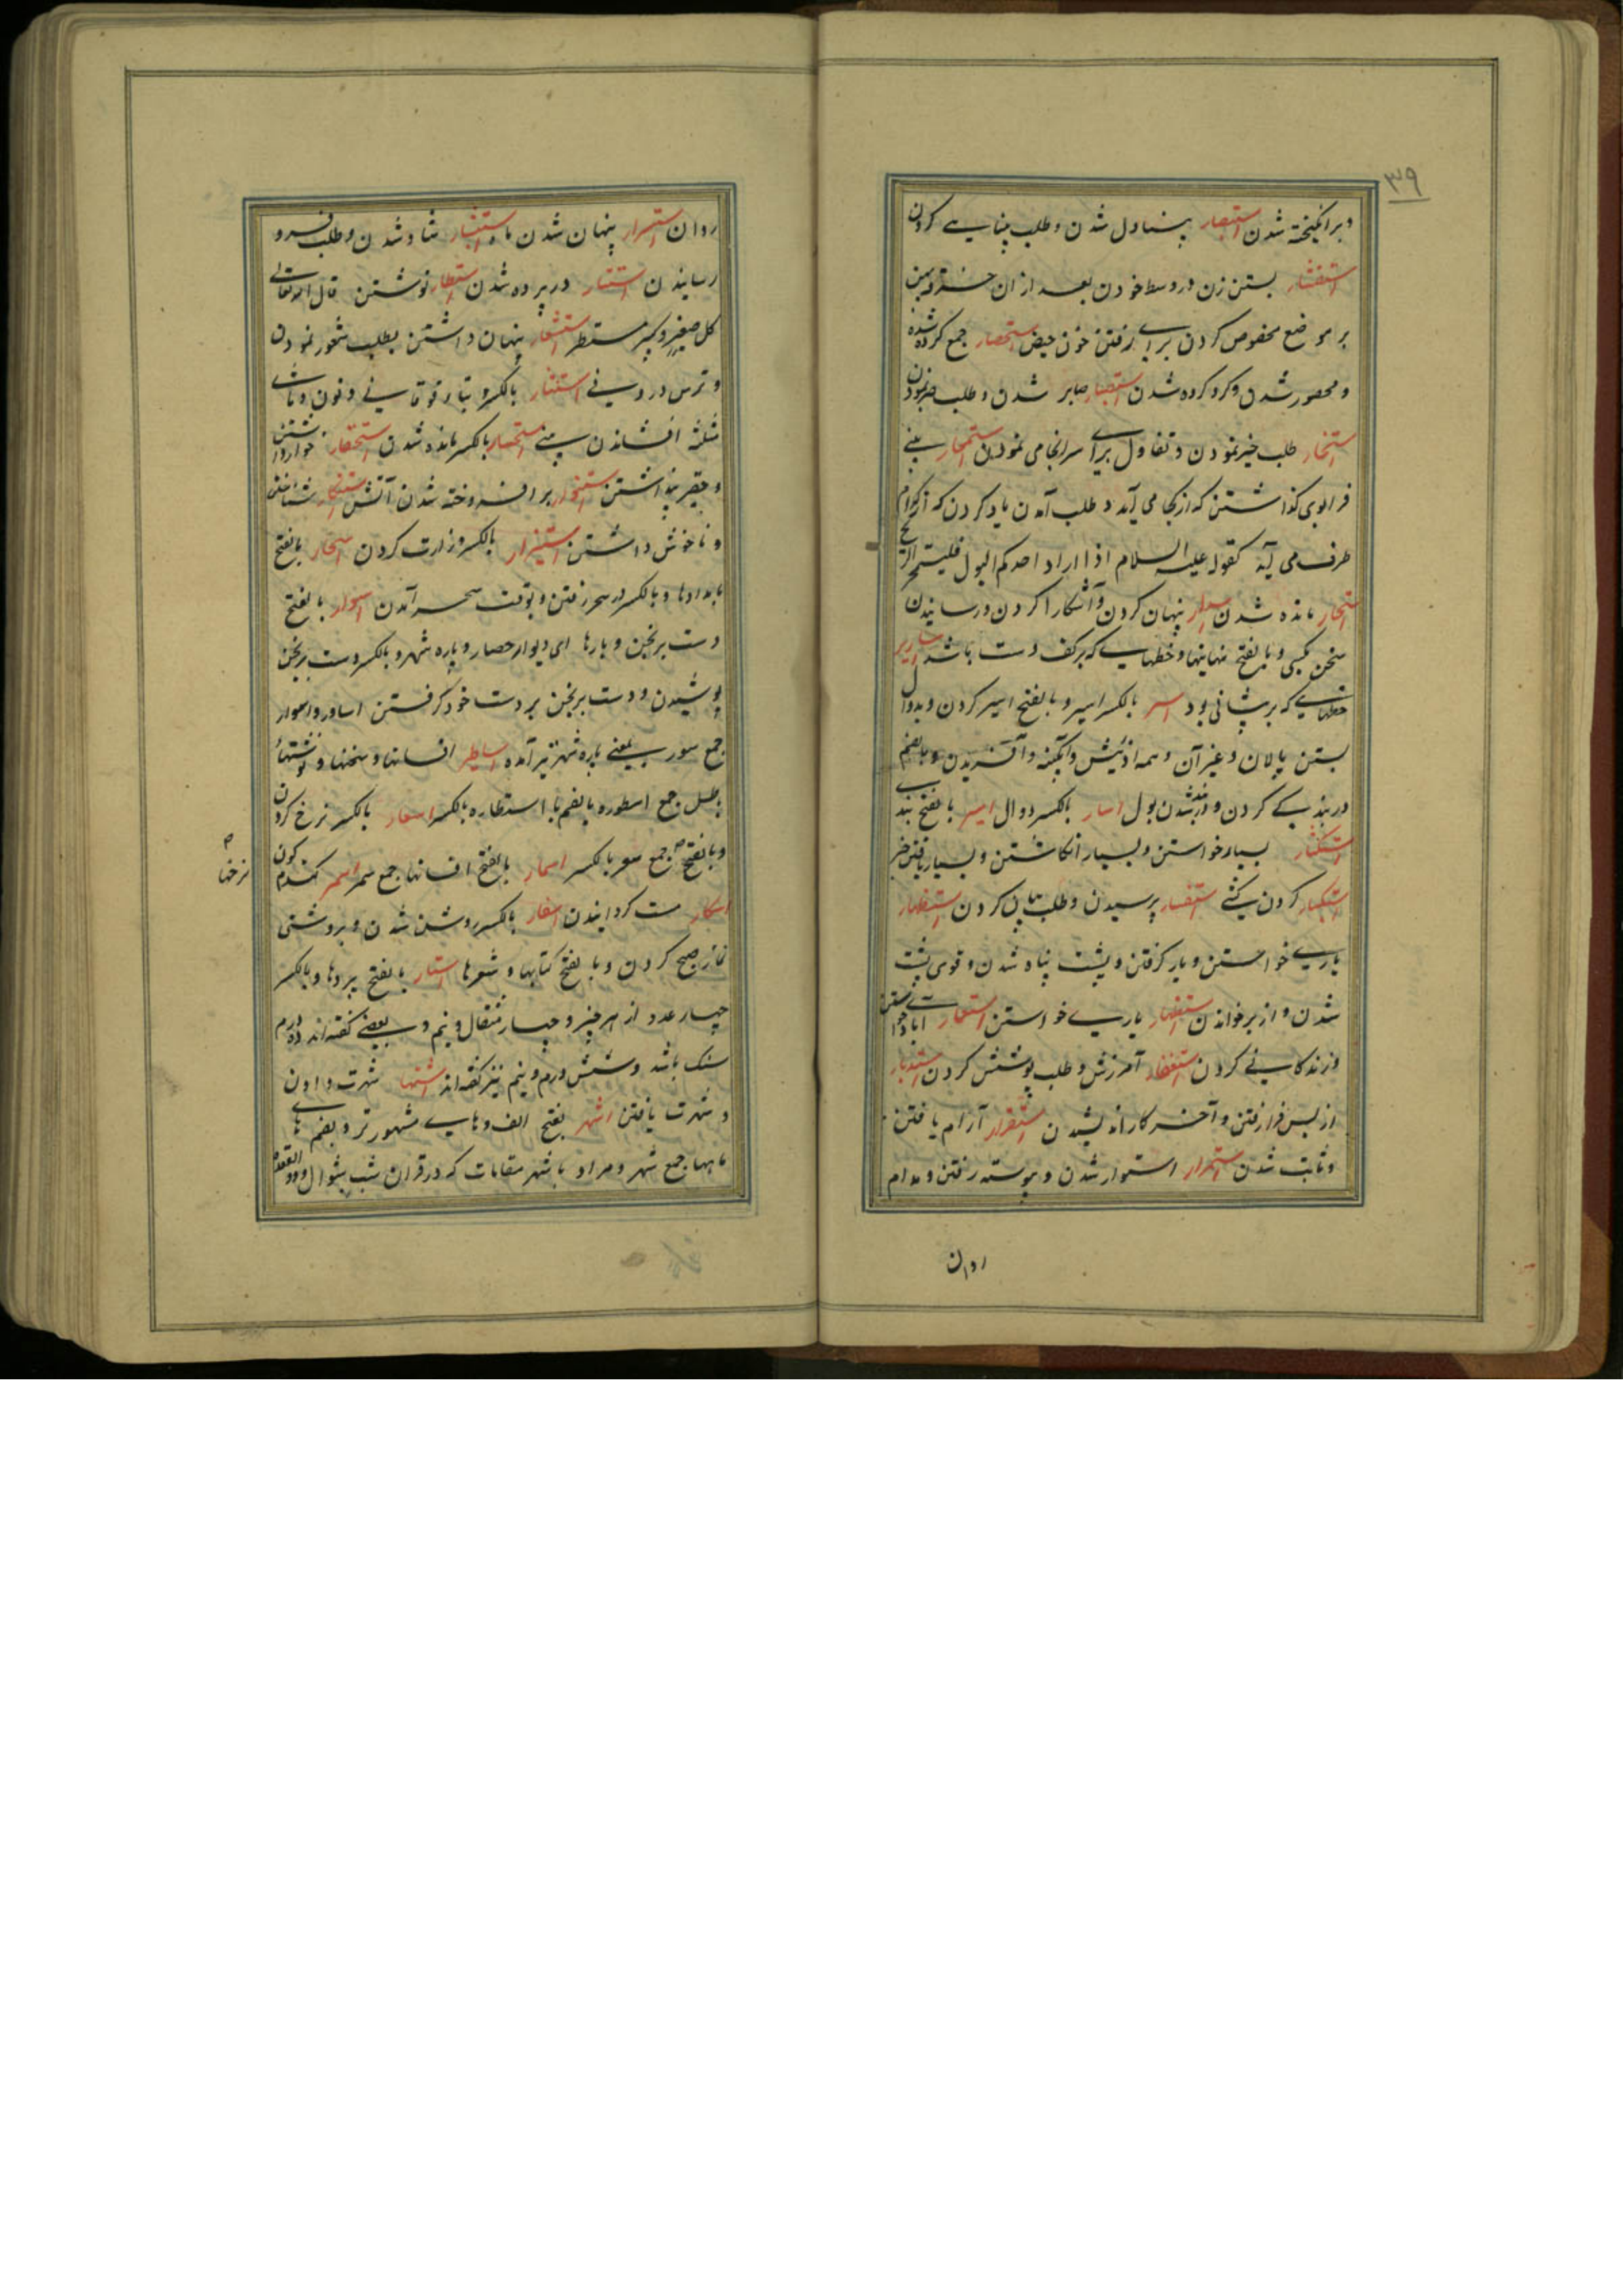 ۳۹
و برانگیخته شدن استبصار بینا دل شدن و طلب بینایی کردن
استثفار بستن زن در وسط خود بعد از ان خرقه پهن
بر موضع مخصوص کردن برای رفتن خون حیض استحصار جمع کرده شده
و محصور شدن و کرد کرده شدن استصبار صابر شدن و طلب صبر نمودن
استخار طلب خیر نمودن و تفاول برای سرانجامی نمودن استمخار بینی
فرا بوی گذاشتن که از کجا می آید و طلب آمدن باد کردن که از کدام
طرف می آید کقوله علیه السلام اذا اراد احدکم البول فلیستمخر الریح
مانده شدن اسرار پنهان کردن و آشکارا کردن و رسانیدن
سخن بکسی و بالفتح نهانیها و خطهایی که بر کف دست باشد اساریر
خطهایی که بر پیشانی بود اسر بالکسر اسیر و بالفتح اسیر کردن و بدوال
بستن پالان و غیر آن و همه آفرینش و آفریدن و بالضم
در بند کردن و بند شدن بول اسار بالکسر دوال اسیر بالفتح بندی
استکثار بسیار خواستن و بسیار انگاشتن و بسیار یافتن خیر
استکبار گردن کشی کردن استفسار پرسیدن و طلب بیان کردن استظهار
یاری خواستن و یار گرفتن و پشت پناه شدن و قوی پشت
شدن و از بر خواندن استظهار یاری خواستن استعمار آبادی خواستن
و زندگانی کردن استغفار آمرزش و طلب پوشش کردن استدبار
از پس فرا رفتن و آخر کار اندیشیدن استقرار آرام یافتن
و ثابت شدن استمرار استوار شدن و پیوسته رفتن و مدام
روان
روان استسرار پنهان شدن ماه استبشار شاد شدن و طلب
رسانیدن استتار در پرده شدن استطار نوشتن قال الله تعالی
کل صغیر و کبیر مستطر استشعار پنهان داشتن بطلب شعور نمودن
و ترس در استنثار بالکسر و تاء فوقانی و نون و ثای
مثلثه افشاندن بینی استحسار بالکسر مانده شدن استحقار خوار داشتن
و حقیر پنداشتن بر افروخته شدن آتش استنکار ناشناختن
و ناخوش داشتن استیزار بالکسر وزارت کردن اسحار بالفتح
بامدادها و بالکسر در سحر رفتن و بوقت سحر آمدن اسوار بالفتح
دست برنجن و بارها ای دیوار حصار و باره شهر و بالکسر دست برنجن
پوشیدن و دست برنجن بر دست خود گرفتن اساور و اسوار
جمع سور یعنی باره شهر نیز آمده اساطیر افسانها و سخنها و نوشتهاء
باطل جمع اسطوره بالضم یا اسطاره بالکسر اسعار بالکسر نرخ کردن
و بالفتح جمع سعر بالکسر اسمار بالفتح افسانها جمع سمر اسمر گندم گون
نرخها
اسکار مست گردانیدن اسفار بالکسر روشن شدن و بروشنی
نماز صبح کردن و بالفتح کتابها و سفرها استار بالفتح پردها و بالکسر
چهار عدد از هر چیز و چهار مثقال و نیم و بعضی گفته اند ده درم
سنگ باشد و شش درم و نیم نیز گفته اند اشتهار شهرت دادن
و شهرت یافتن اشهر بفتح الف و های مشهور تر و بضم ها
ماهها جمع شهر و مراد باشهر مقامات که در قران شوال و ذو القعده